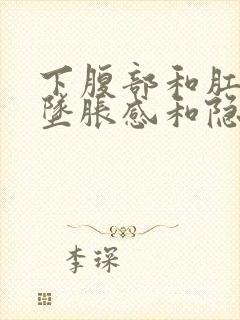 下腹部和肛
坠胀感和隐
李琛